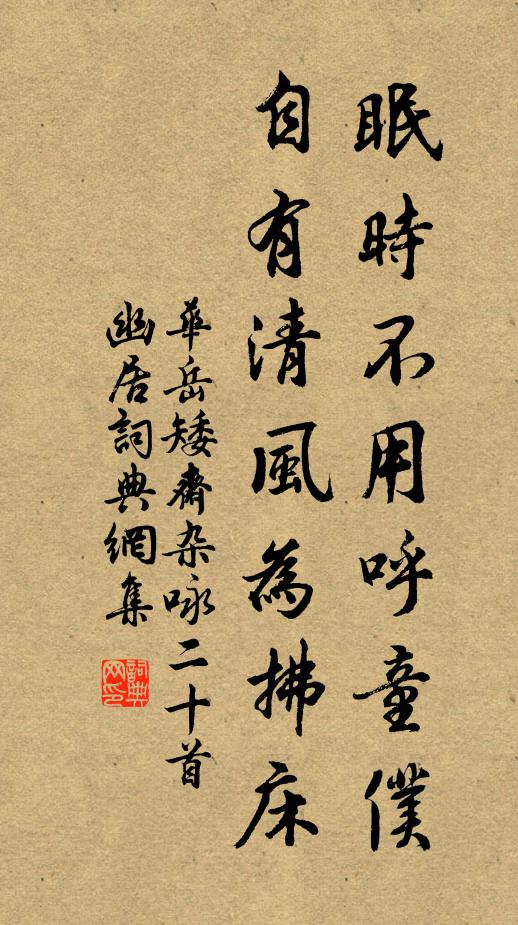 眠時不用呼童僕
自有清風為拂床
華岳矮齋杂咏二十首
幽居詞典網集
詞典网印